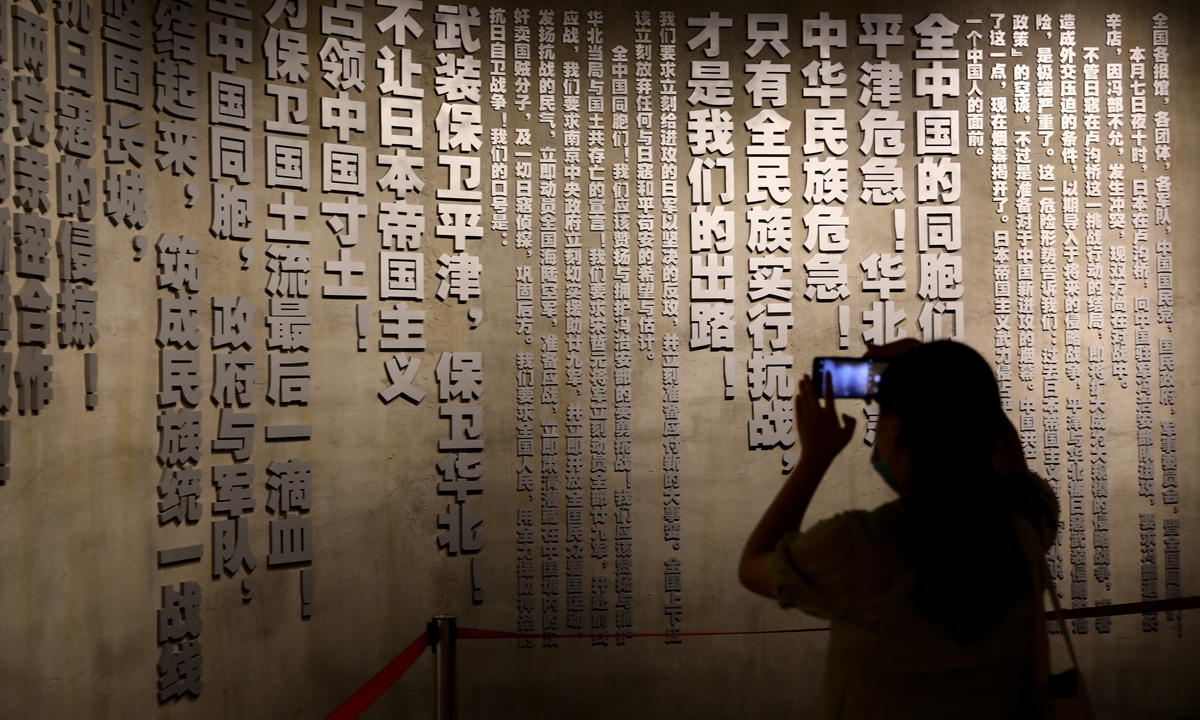 全国各报馆,各团体,各军队,中国国民党,国民政府,军事委员会,暨全国同
本月七日夜十时,日本在卢沟桥,向中国驻军冯治安部队进攻,要求冯部退至长
辛店,因冯部不允,发生冲突,现双方尚在对战中。
不管日寇在卢沟桥这一挑战行动的结局,即将扩大成为大规模的侵略战争,或者
造成外交压迫的条件,以期导入于将来的侵略战争,平津与华北被日寇武装侵略的危
险,是极端严重了。这一危险形势告诉我们:过去日本帝国主义对
政策」的空谈,不过是准备对于中国新进攻的烟幕。中国共
了这一点,现在烟幕揭开了。日本帝国主义武力侵
一个中国人的面前。
全中国的同胞们
平津危急!华北
中华民族危急!
只有全民族实行抗战,
才是我们的出路!
我们要求立刻给进攻的日军以坚决的反攻,并立刻准备应付新的大事变。全国上下应
该立刻放弃任何与日寇和平苟安的希望与估计。
全中国同胞们!我们应该赞扬与拥护冯治安部的英勇抗战!我们应该赞扬与拥护
华北当局与国土共存亡的宣言!我们要求宋哲元将军立刻动员全部廿九军,开赴前线
应战,我们要求南京中央政府立刻切实援助廿九军,并立即开放全国民众爱国运动,
发扬抗战的民气,立即动员全国海陆空军,准备应战,立即肃清潜藏在中国境内的汉
奸卖国贼分子,及一切日寇侦探,巩固后方。我们要求全国人民,用全力援助神圣的
抗日自卫战争!我们的口号是:
武装保卫平津,保卫华北!
不让日本帝国主义
占领中国寸土!
为保卫国土流最后一滴血!
全中国同胞,政府与军队,
团结起来,筑成民族统一战线
坚固长城,
抗日寇的侵掠!
两党亲密合作